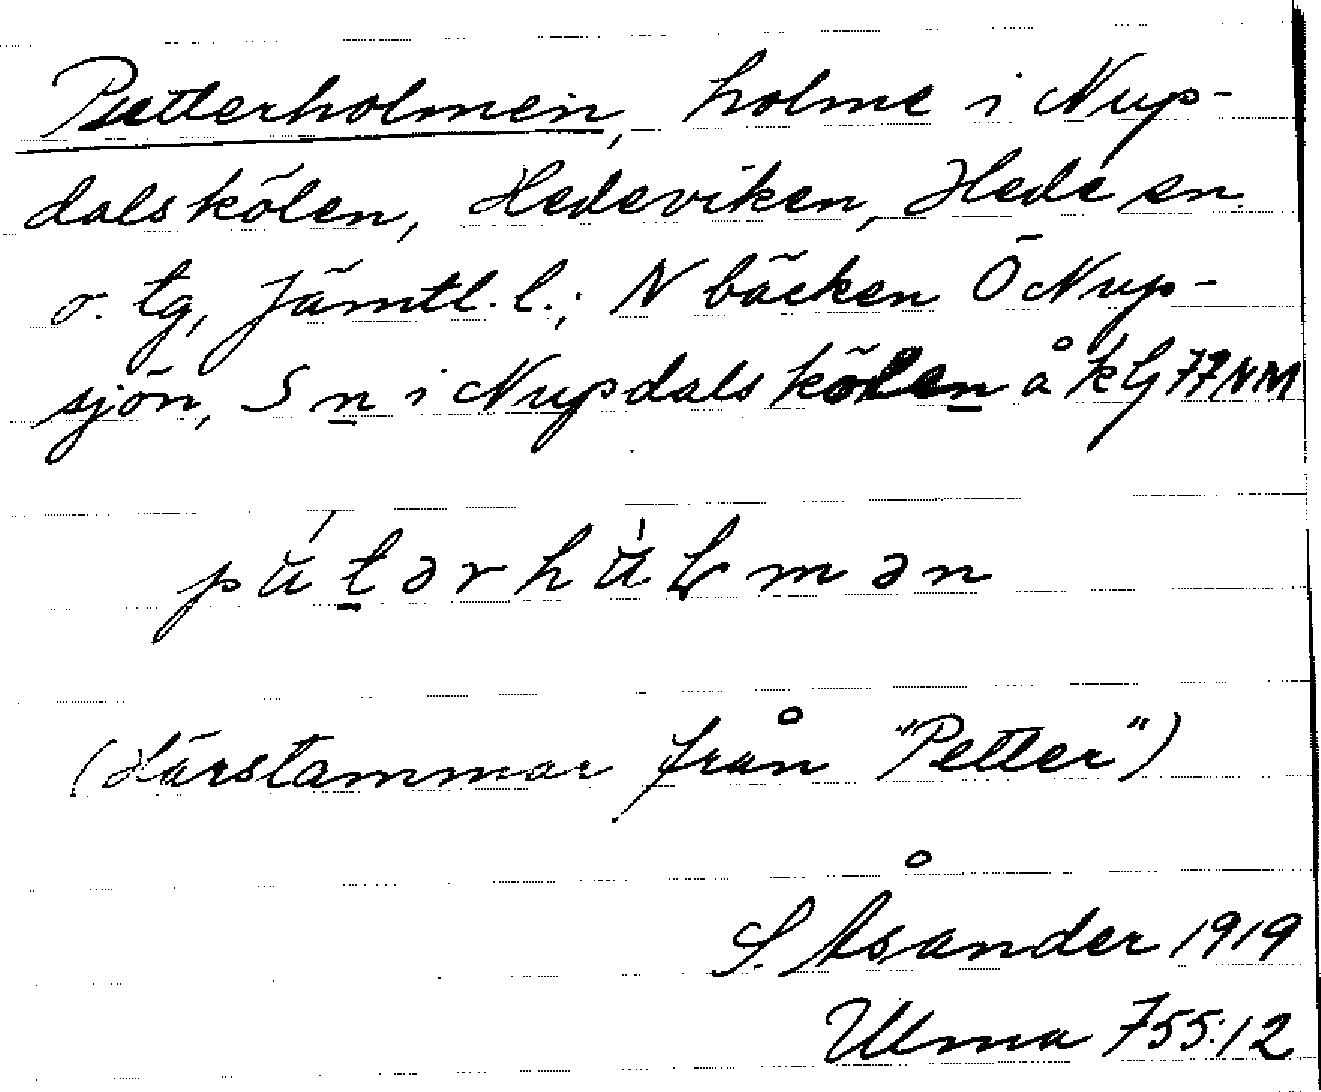 Putterholmen, holme i Nup-
dalskölen, Hedeviken, Hede sn
o. tg, Jämtl. l.; N bäcken Ö Nup-
sjön, S n i Nupdalskölen å kG 77 NM
(Härstammar från "Petter")
S. Åsander 1919
Ulma 755:12